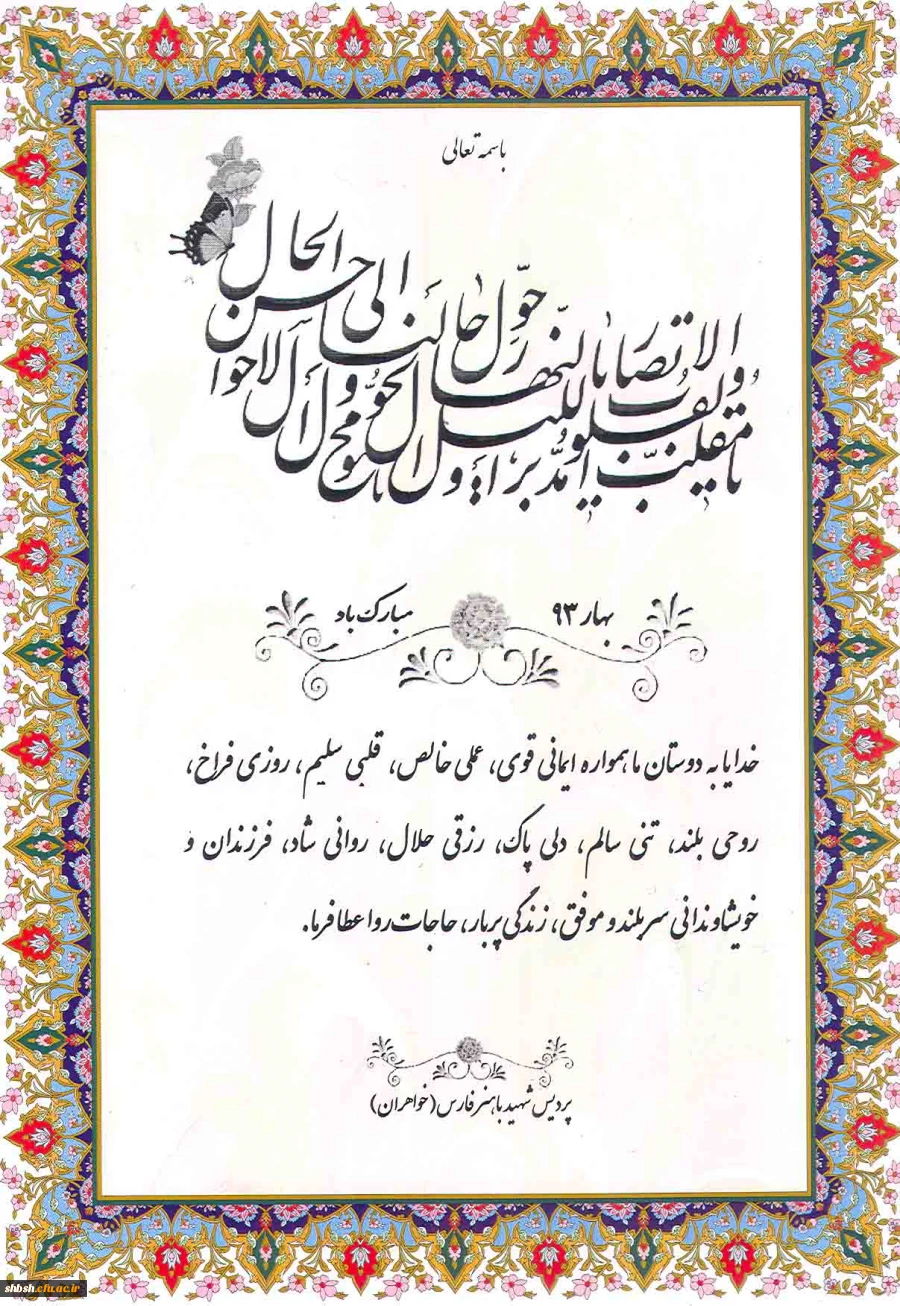 باسمه تعالی
یا مقلب القلوب و الابصار یا مدبر اللیل و النهار یا محول الحول و الاحوال حول حالنا الی احسن الحال
بهار ۹۳ مبارک باد
خدایا به دوستان ما همواره ایمانی قوی، عملی خالص، قلبی سلیم، روزی فراخ،
روحی بلند، تنی سالم، دلی پاک، رزقی حلال، روانی شاد، فرزندان و
خویشاوندانی سربلند و موفق، زندگی پربار، حاجات روا عطا فرما.
پردیس شهید باهنر فارس (خواهران)
shbsh.cfu.ac.ir